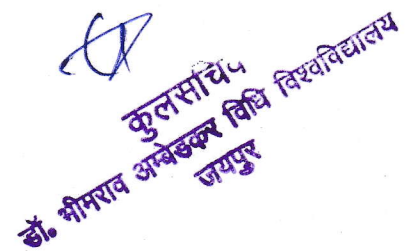 कुलसचिव
डॉ. भीमराव अम्बेडकर विधि विश्वविद्यालय
जयपुर